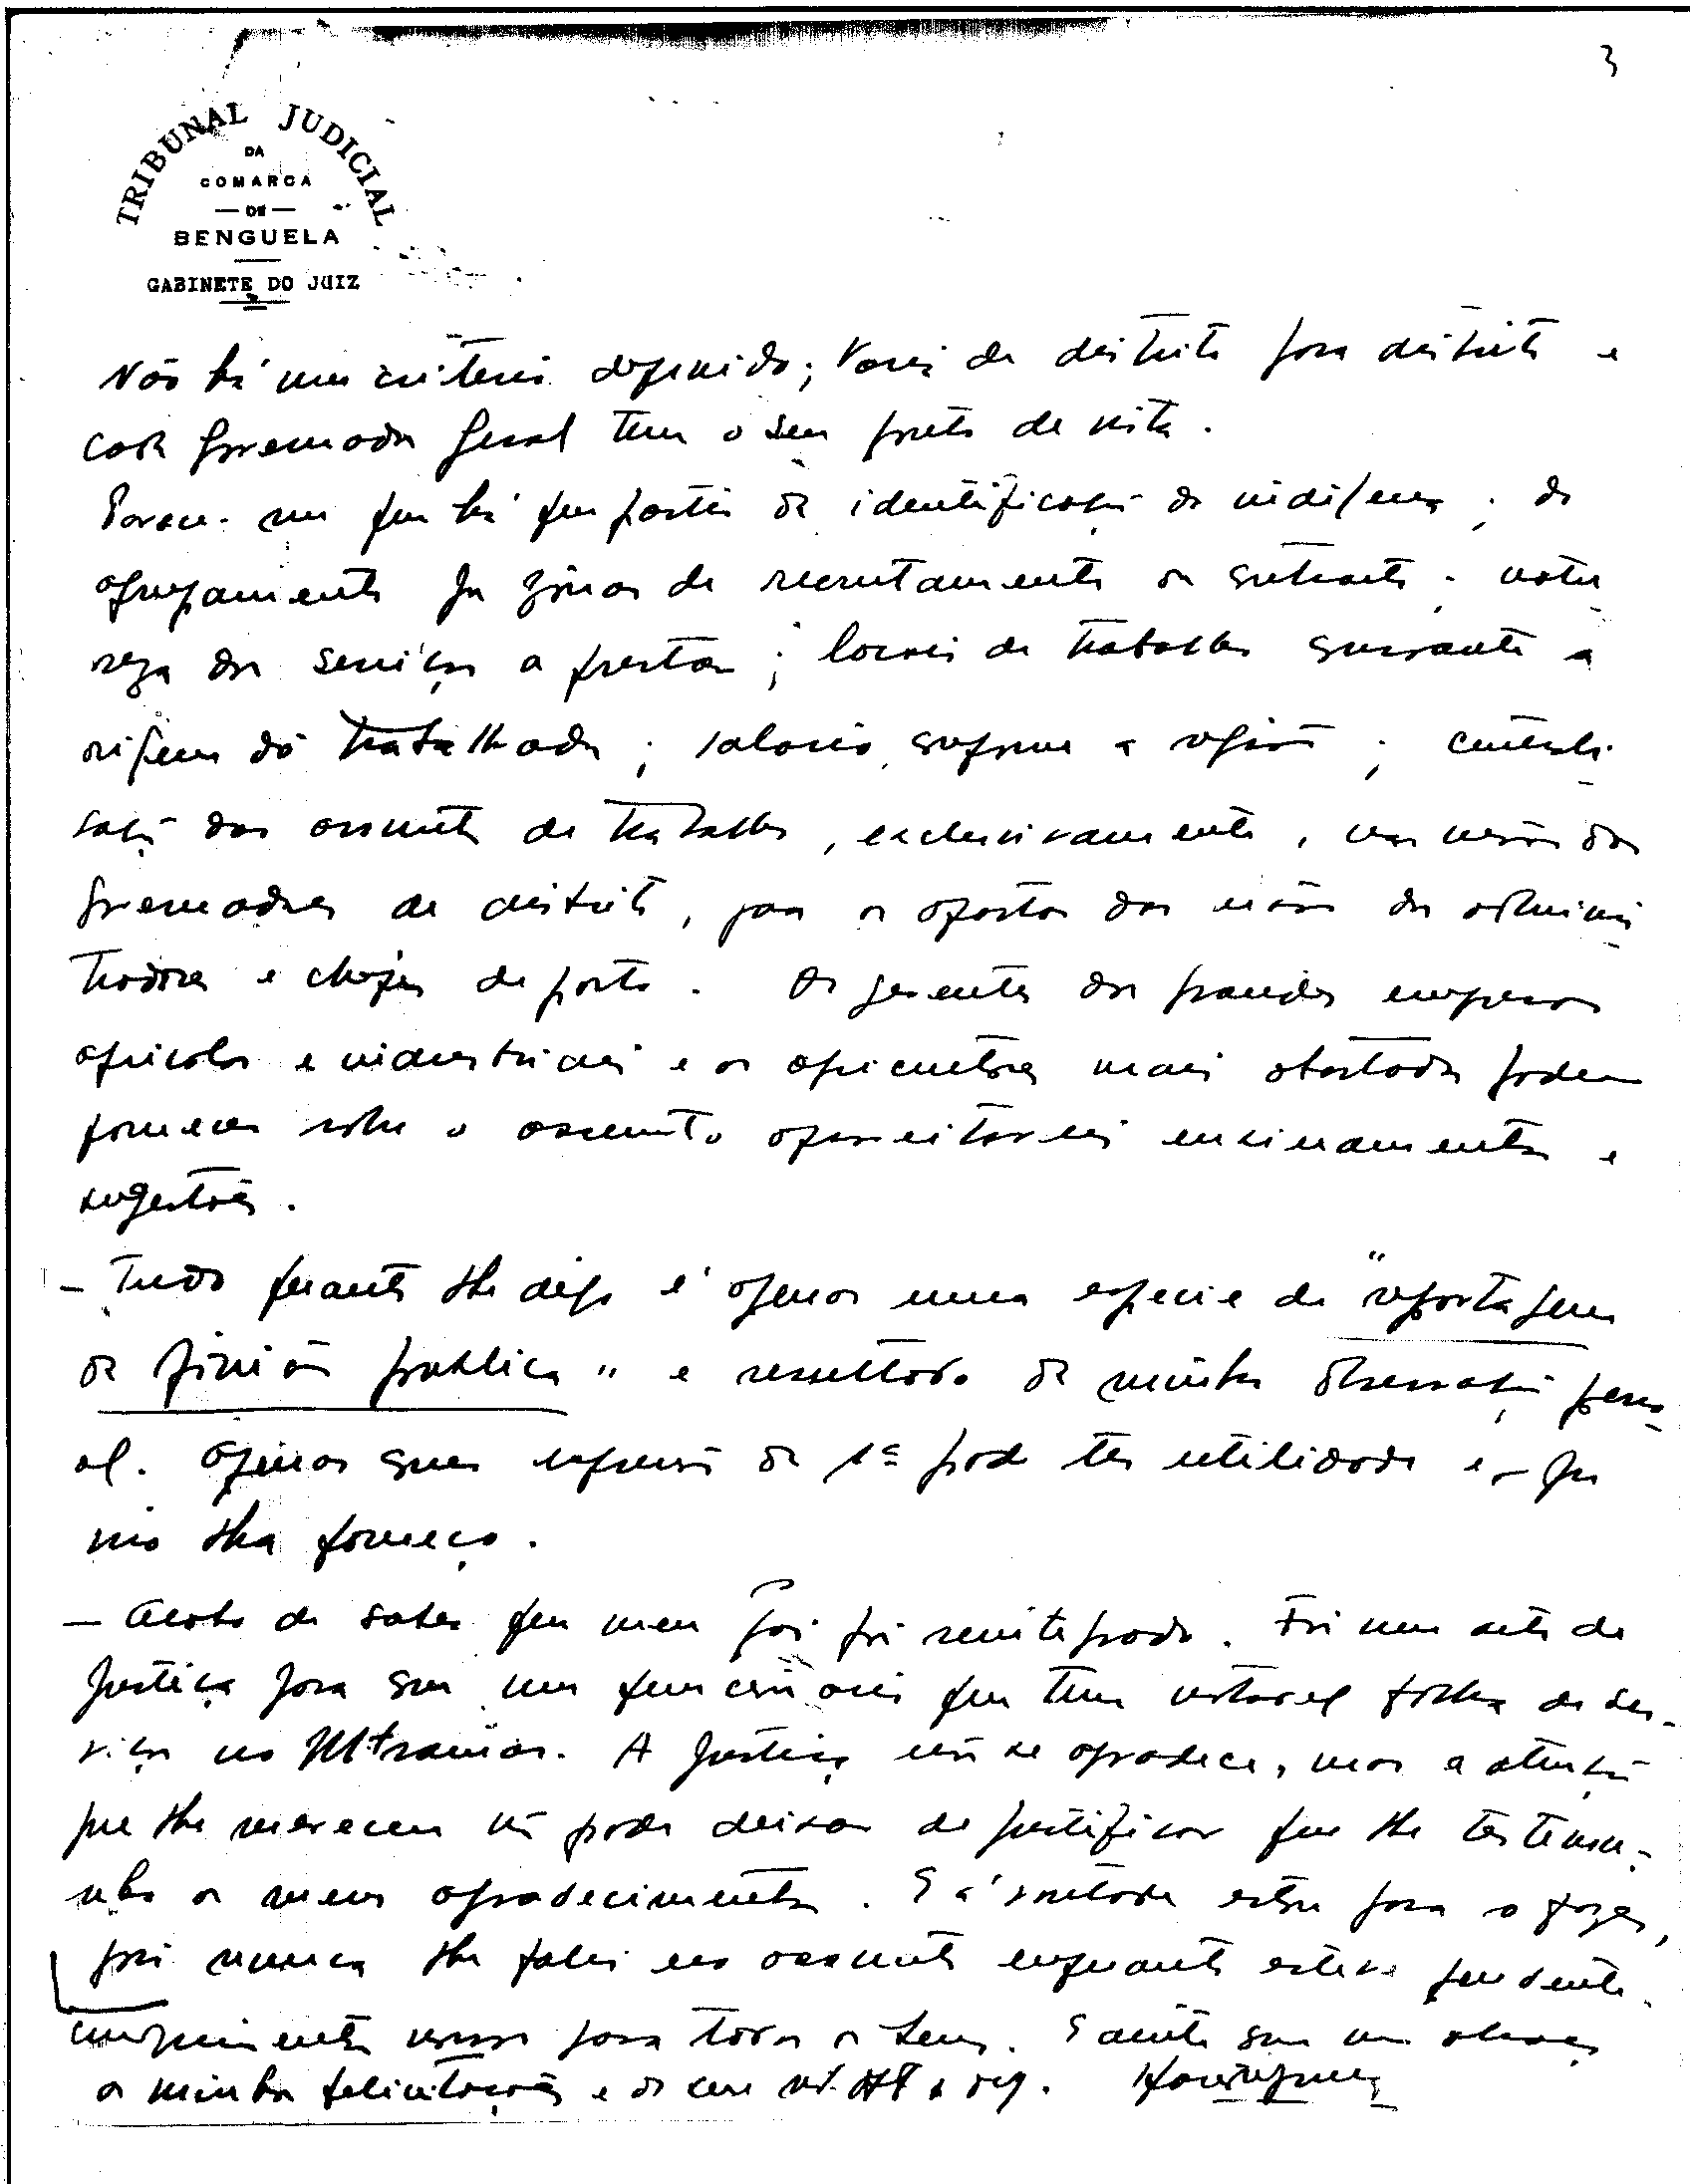 3
TRIBUNAL JUDICIAL
DA
COMARCA
— DE —
BENGUELA
GABINETE DO JUIZ
Não há um criterio definido; varia de distrito para distrito e
cada governador geral tem o seu ponto de vista.
Parece-me que há que partir da identificação do indigena; do
agrupamento por zonas de recrutamento ou contrato; natu
reza dos serviços a prestar; locais de trabalho consoante a
origem do trabalhador; salario conforme a região; centrali-
sação dos assuntos de trabalho, exclusivamente, nas mãos dos
governadores de distrito, para os afastar das mãos dos adminis
tradores e chefes de posto. Os gerentes das grandes empresas
agricolas e industriais e os agricultores mais abastados podem
fornecer sobre o assunto aproveitaveis ensinamentos e
sugestões.
— Tudo quanto lhe digo é apenas uma especie de "reportagem
da opinião publica" e resultado da minha observação pesso-
al. Apenas como expressão da 1ª pode ter utilidade e que
lha forneço.
— Acabo de saber que meu foi reintegrado. Foi um acto de
justiça para com um funcionario que tem notavel folha de ser-
viços no Ultramar. A justiça não se agradece, mas a atenção
que lhe mereceu não pode deixar de justificar que lhe testemu-
nhe os meus agradecimentos. E á vontade estou para o fazer,
pois nunca lhe falei no assunto enquanto esteve pendente.
Cumprimentos nossos para todos os seus. E aceite com um abraço
as minhas felicitações e do seu